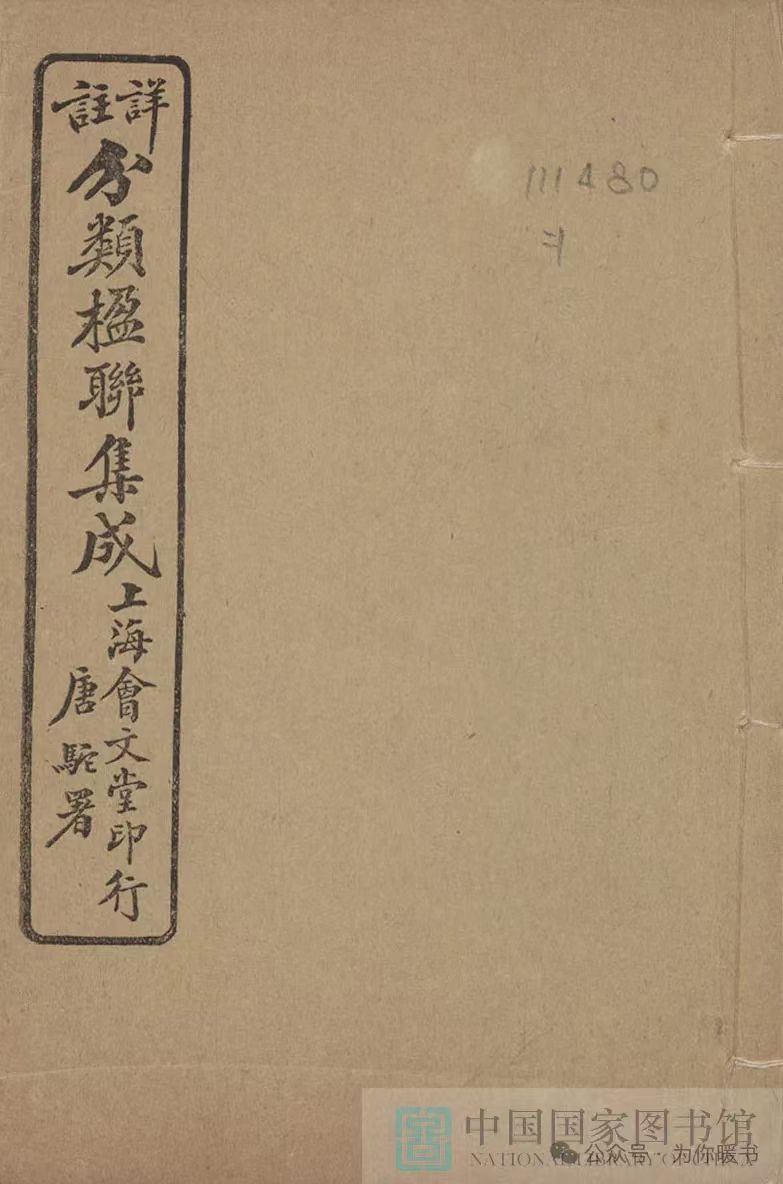 詳註
分類楹聯集成
上海會文堂印行
唐駝署
111480
中国国家图书馆
NATIONAL LIBRARY OF CHINA
公众号·为你暖书